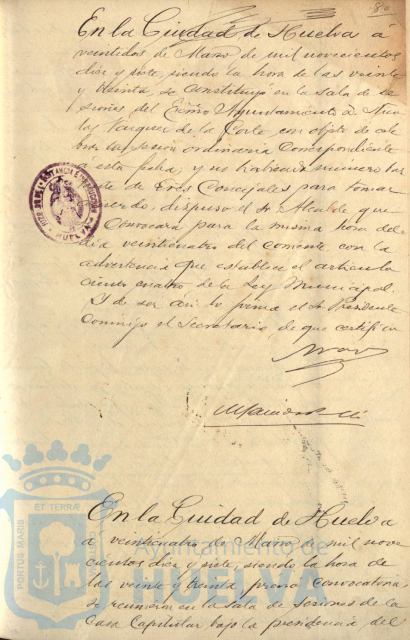 En la Ciudad de Huelva á
veintidos de Marzo de mil novecientos
diez y siete, siendo la hora de las veinte
y treinta, se constituyó en la sala de se
siones del Excmo Ayuntamiento D.
Vazquez de la Corte con objeto de cele
brar la sesion ordinaria correspondiente
á esta fecha, y no habiendo numero bas
te de Sres Concejales para tomar
acuerdo, dispuso el Sr Alcalde que
convocará para la misma hora del
dia veinticuatro del corriente con la
advertencia que establece el articulo
ciento cuatro de la Ley Municipal.
Y de ser así lo firma el Sr Presidente
conmigo el Secretario de que certifico
HUELVA
PORTUS MARIS
ET TERRÆ
Ayuntamiento de
HUELVA
En la Ciudad de Huelva
a veinticuatro de Marzo de mil nove
cientos diez y siete, siendo la hora de
las veinte y treinta previa convocatoria
se reunieron en la sala de sesiones de la
Casa Capitular bajo la presidencia del